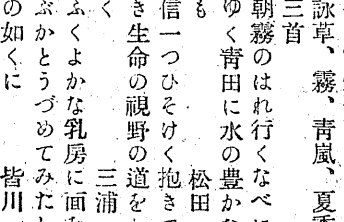 詠草、霧、靑嵐、夏季
三首
朝霧のはれ行くなべに
ゆく靑田に水の豊かな
も　　　　　　松田
信一つひそけく抱きて
き生命の視野の道を
く　　　　　　三浦
ふくよかな乳房に面を
ぶかとうづめてみたし
の如くに　　　皆川